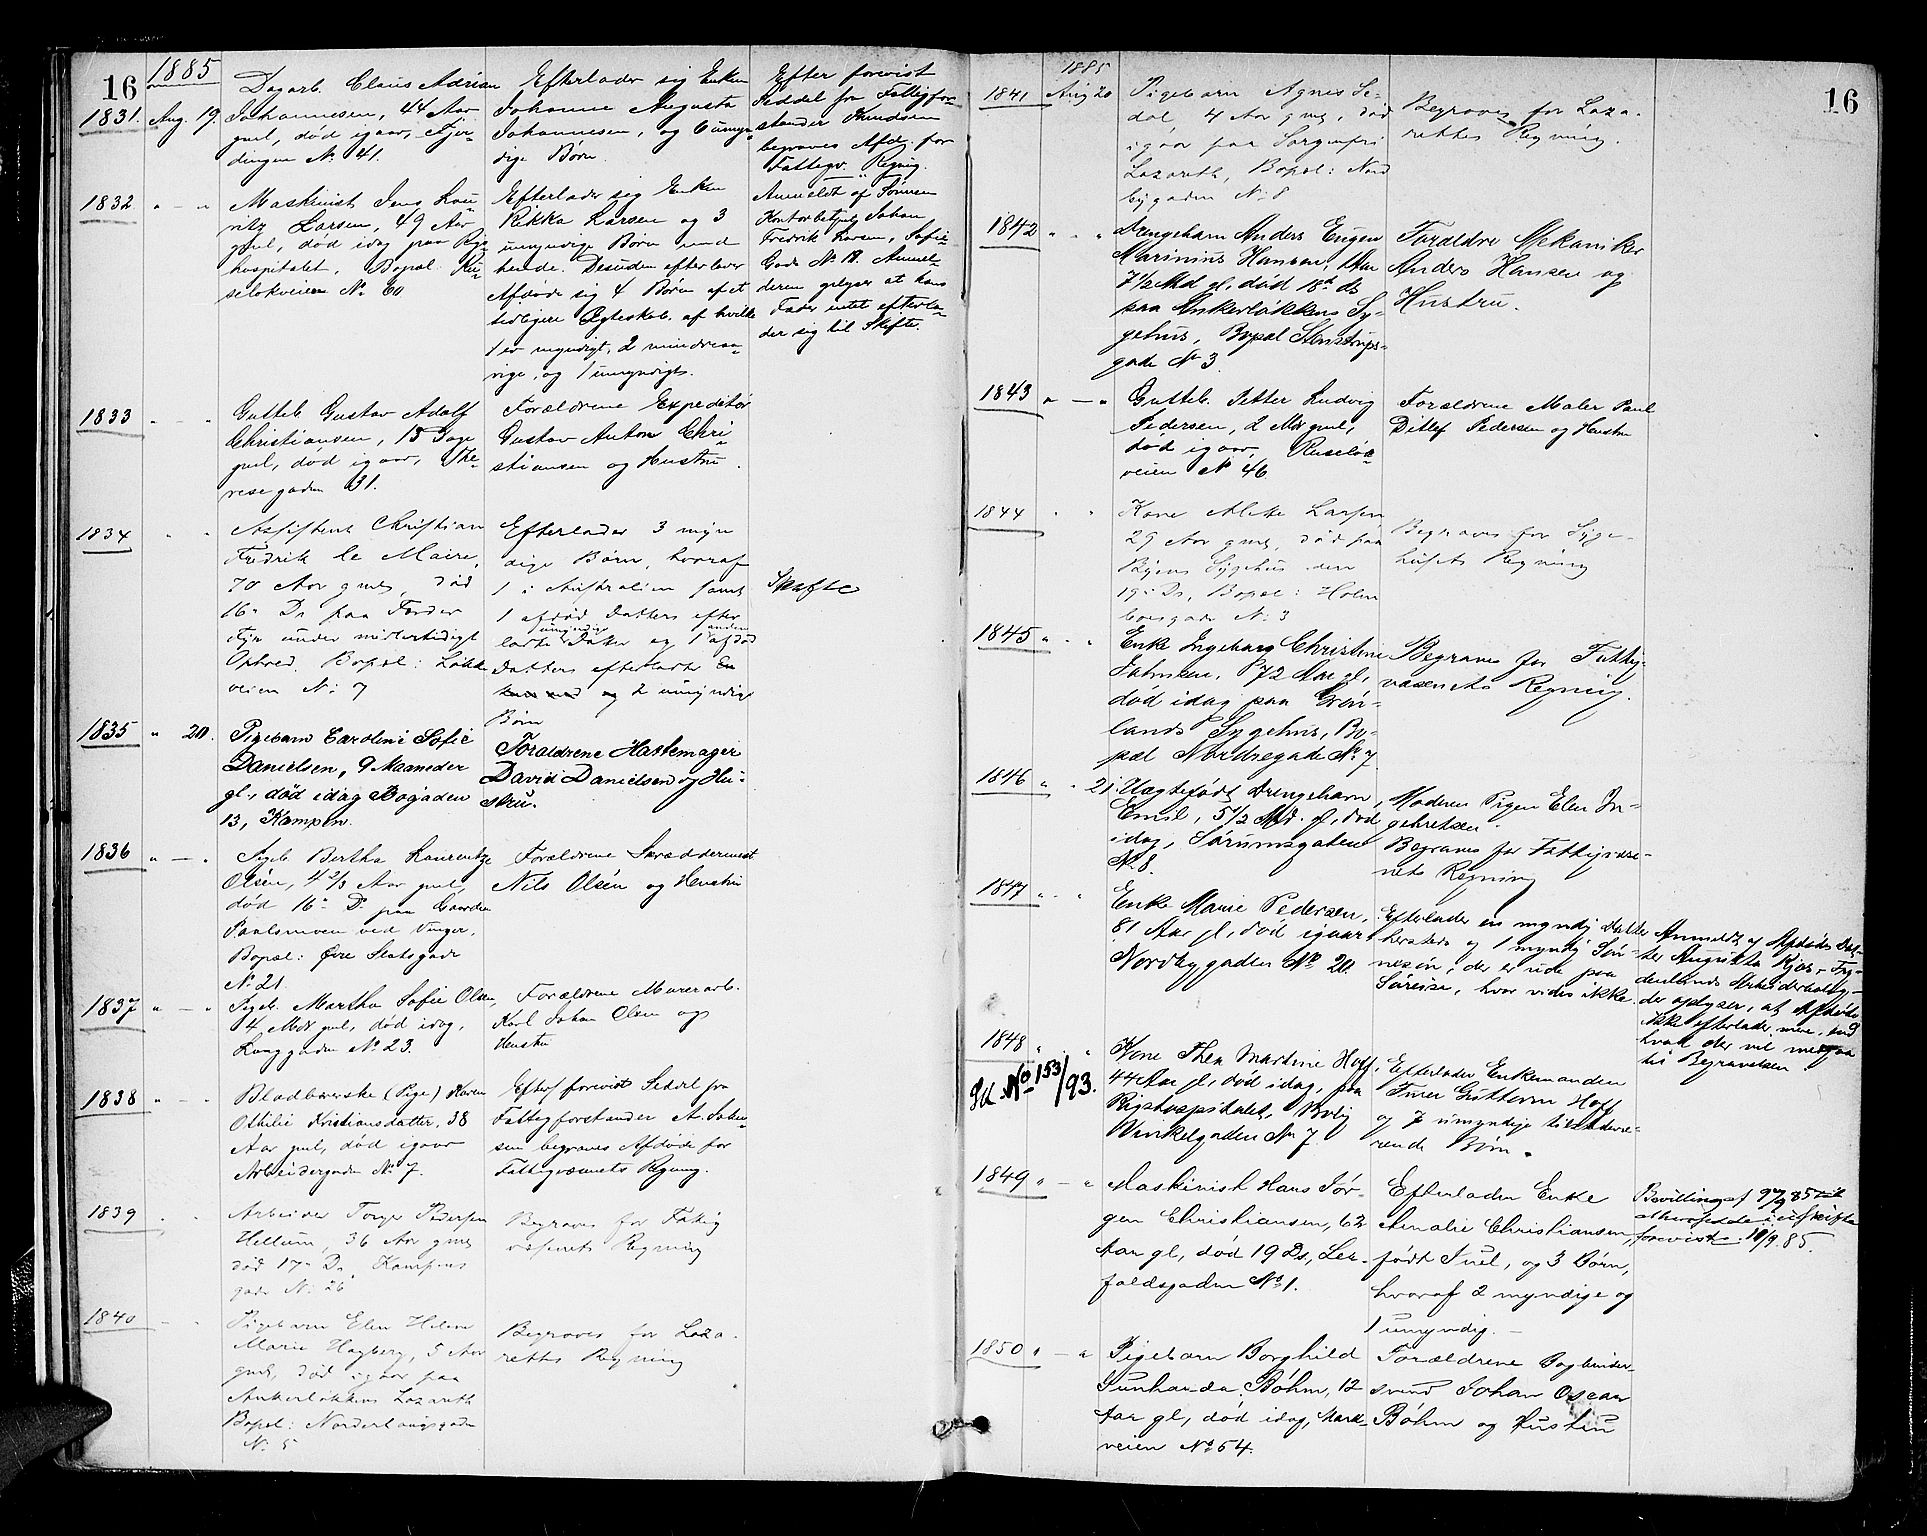 16
1885
1831. Aug. 19.
Dagarb. Claus Adrian
Johannesen, 44 Aar
gml, død igaar,
No 41.
Efterlader sig Enken
Johanne Augusta
Johannesen, og 6 umyn-
dige Børn.
Efter forevist
Seddel fra Fattigfor-
stander Knudsen
begraves Afdø. for
Fattigv. Regnig.
1832 " - "
Maskinist Jens Lau-
ritz Larsen, 49 Aar
gml, død idag paa Rigs-
hospitalet. Bopæl: Ru-
seløkveien No 60
Efterlader sig Enken
Rikka Larsen og 3
umyndige Børn med
hende. Desuden efterlader
Afdøde sig 4 Børn af et
tidligere Ægteskab. af hvilke
1 er myndigt, 2 mindreaa-
rige, og 1 umyndigt.
Anmeldt af Sønnen
Kontorbetjent Johan
Fredrik Larsen, Sofies
Gade No 18. Anmel-
deren oplyser at hans
Fader intet efterla-
der sig til Skifte.
1833 " - "
Gutteb. Gustav Adolf
Christiansen, 15 Dage
gml, død igaar, The-
resegaden 31.
Forældrene Expeditør
Gustav Anton Chri-
stiansen og Hustru.
1834 " "
Assistent Christian
Fredrik le Maire,
70 Aar gml, død
16de Ds paa Færder
Fyr under midlertidigt
Ophold. Bopæl: Løkke
veien No 7
Efterlader 3 myn
dige Børn, hvoraf
1 i Australien samt
1 afdød Datters efter
ladte umyndige Datter og 1 anden afdød
Datters efterladte
og 2 umyndige
Børn
Skifte
1835 " 20.
Pigebarn Caroline Sofie
Danielsen, 9 Maaneder
gl., død idag Bogaden
13, Kampen.
Forældrene Hattemager
David Danielsen og Hu-
stru.
1836 " - "
Pigeb. Bertha Laurentze
Olsén, 4 2/3 Aar gml,
død 16de Ds paa Gaarden
Paulsmoen ved Vinger,
Bopæl: Øvre Slotsgade
No 21.
Forældrene Skræddermest
Nils Olsén og Hustru
1837 " - "
Pigeb. Martha Sofie Olsen
4 Mdr gml, død idag,
Langgaden No 23.
Forældrene Murerarb.
Karl Johan Olsen og
Hustru
1838 " - "
(Pige) Karen
Othilie Kristiansdatter, 38
Aar gml, død igaar
Arbeidergaden No 7.
Efter forevist Seddel fra
Fattigforstander A. Johan-
sen begraves Afdøde for
Fattigvæsenets Regning.
1839 " "
Arbeider Torger Pedersen
Hellum, 36 Aar gml
død 17de Ds, Kampens
gade No 26
Begraves for Fattig
væsenets Regning
1840 " "
Pigebarn Elen Helene
Marie Hagberg, 5 Aar
gml, død igaar paa
Ankerløkkens Lazareth
Bopæl: Norderlangsgaden
No 5
Begraves for Laza-
rettets Regning
16
1885
1841 Aug 20
Pigebarn Agnes Se-
dal, 4 Aar gml, død
igaar paa Sorgenfri
Lazareth, Bopæl: Nord
bygaden No 8
Begraves for Laza-
rettets Regning.
1842 " " "
Drengebarn Anders Eugen
Marinius Hansen, 1 Aar
7 1/2 Md gl, død 18de ds
paa Ankerløkkens Sy-
gehus, Bopæl Stenstrups-
gade No 3.
Forældre Mekaniker
Anders Hansen og
Hustru.
1843 " - "
Gutteb. Petter Ludvig
Pedersen, 2 Mdr gml,
død igaar, Ruseløk-
veien No 46.
Forældrene Maler Paul
Ditlef Pedersen og Hustru
1844 " "
Kone Larsen
29 Aar gml, død paa
Byens Sygehus den
19de Ds, Bopæl: Holm
boesgade No 3
Begraves for Syge-
husets Regning
1845 " " "
Enke Ingeborg Christine
Johnsen, 72 Aar gl,
død idag paa Grøn-
lands Sygehus, Bo-
pæl Nordregade No 7
Begraves for Fattig-
væsenets Regning.
1846 " " 21
Uægtefødt Drengebarn,
Emil, 5 1/2 Md. gl, død
idag, Sørumsgaten
No 8.
Moderen Pigen Elen In-
gebretsen.
Begraves for Fattigvæse-
nets Regning
1847 " " "
Enke Marie Pedersen,
81 Aar gl, død igaar
Nordbygaden No 20.
Efterlader en myndig Datter
hersteds og 1 myndig Søn-
nesøn, der er ude paa
Søreise, hvor vides ikke.
Anmeldt af Afdødes Dat-
ter Augusta
der oplyser, at Afdøde
ikke efterlader mere, end
hvad der vil medgaa
til Begravelsen.
1848 " "
No 153/93.
Kone Thea Martine Hoff,
44 Aar gl, død idag, paa
Rigshospitalet, Bolig
Winkelgaden No 7.
Efterlader Enkemanden
Guttorm Hoff
og 7 umyndige tilstedevæ-
rende Børn.
1849 " - "
Maskinist Hans Jør-
gen Christiansen, 62
Aar gl, død 19 Ds, Lek-
foldsgaden No 1.
Efterlader Enke
Amalie Christiansen,
født Juel, og 3 Børn,
hvoraf 2 myndige og
1 umyndig.
Bevilling af 9/9 85 til
at hensidde i uskiftet
forevist 10/9. 85.
1850 " - "
Pigebarn Borghild
Sunhanda Bøhm, 12
Aar gl, død idag, Mark-
veien No 54.
Forældrene Bogbinder-
svend Johan Oscar
Bøhm og Hustru